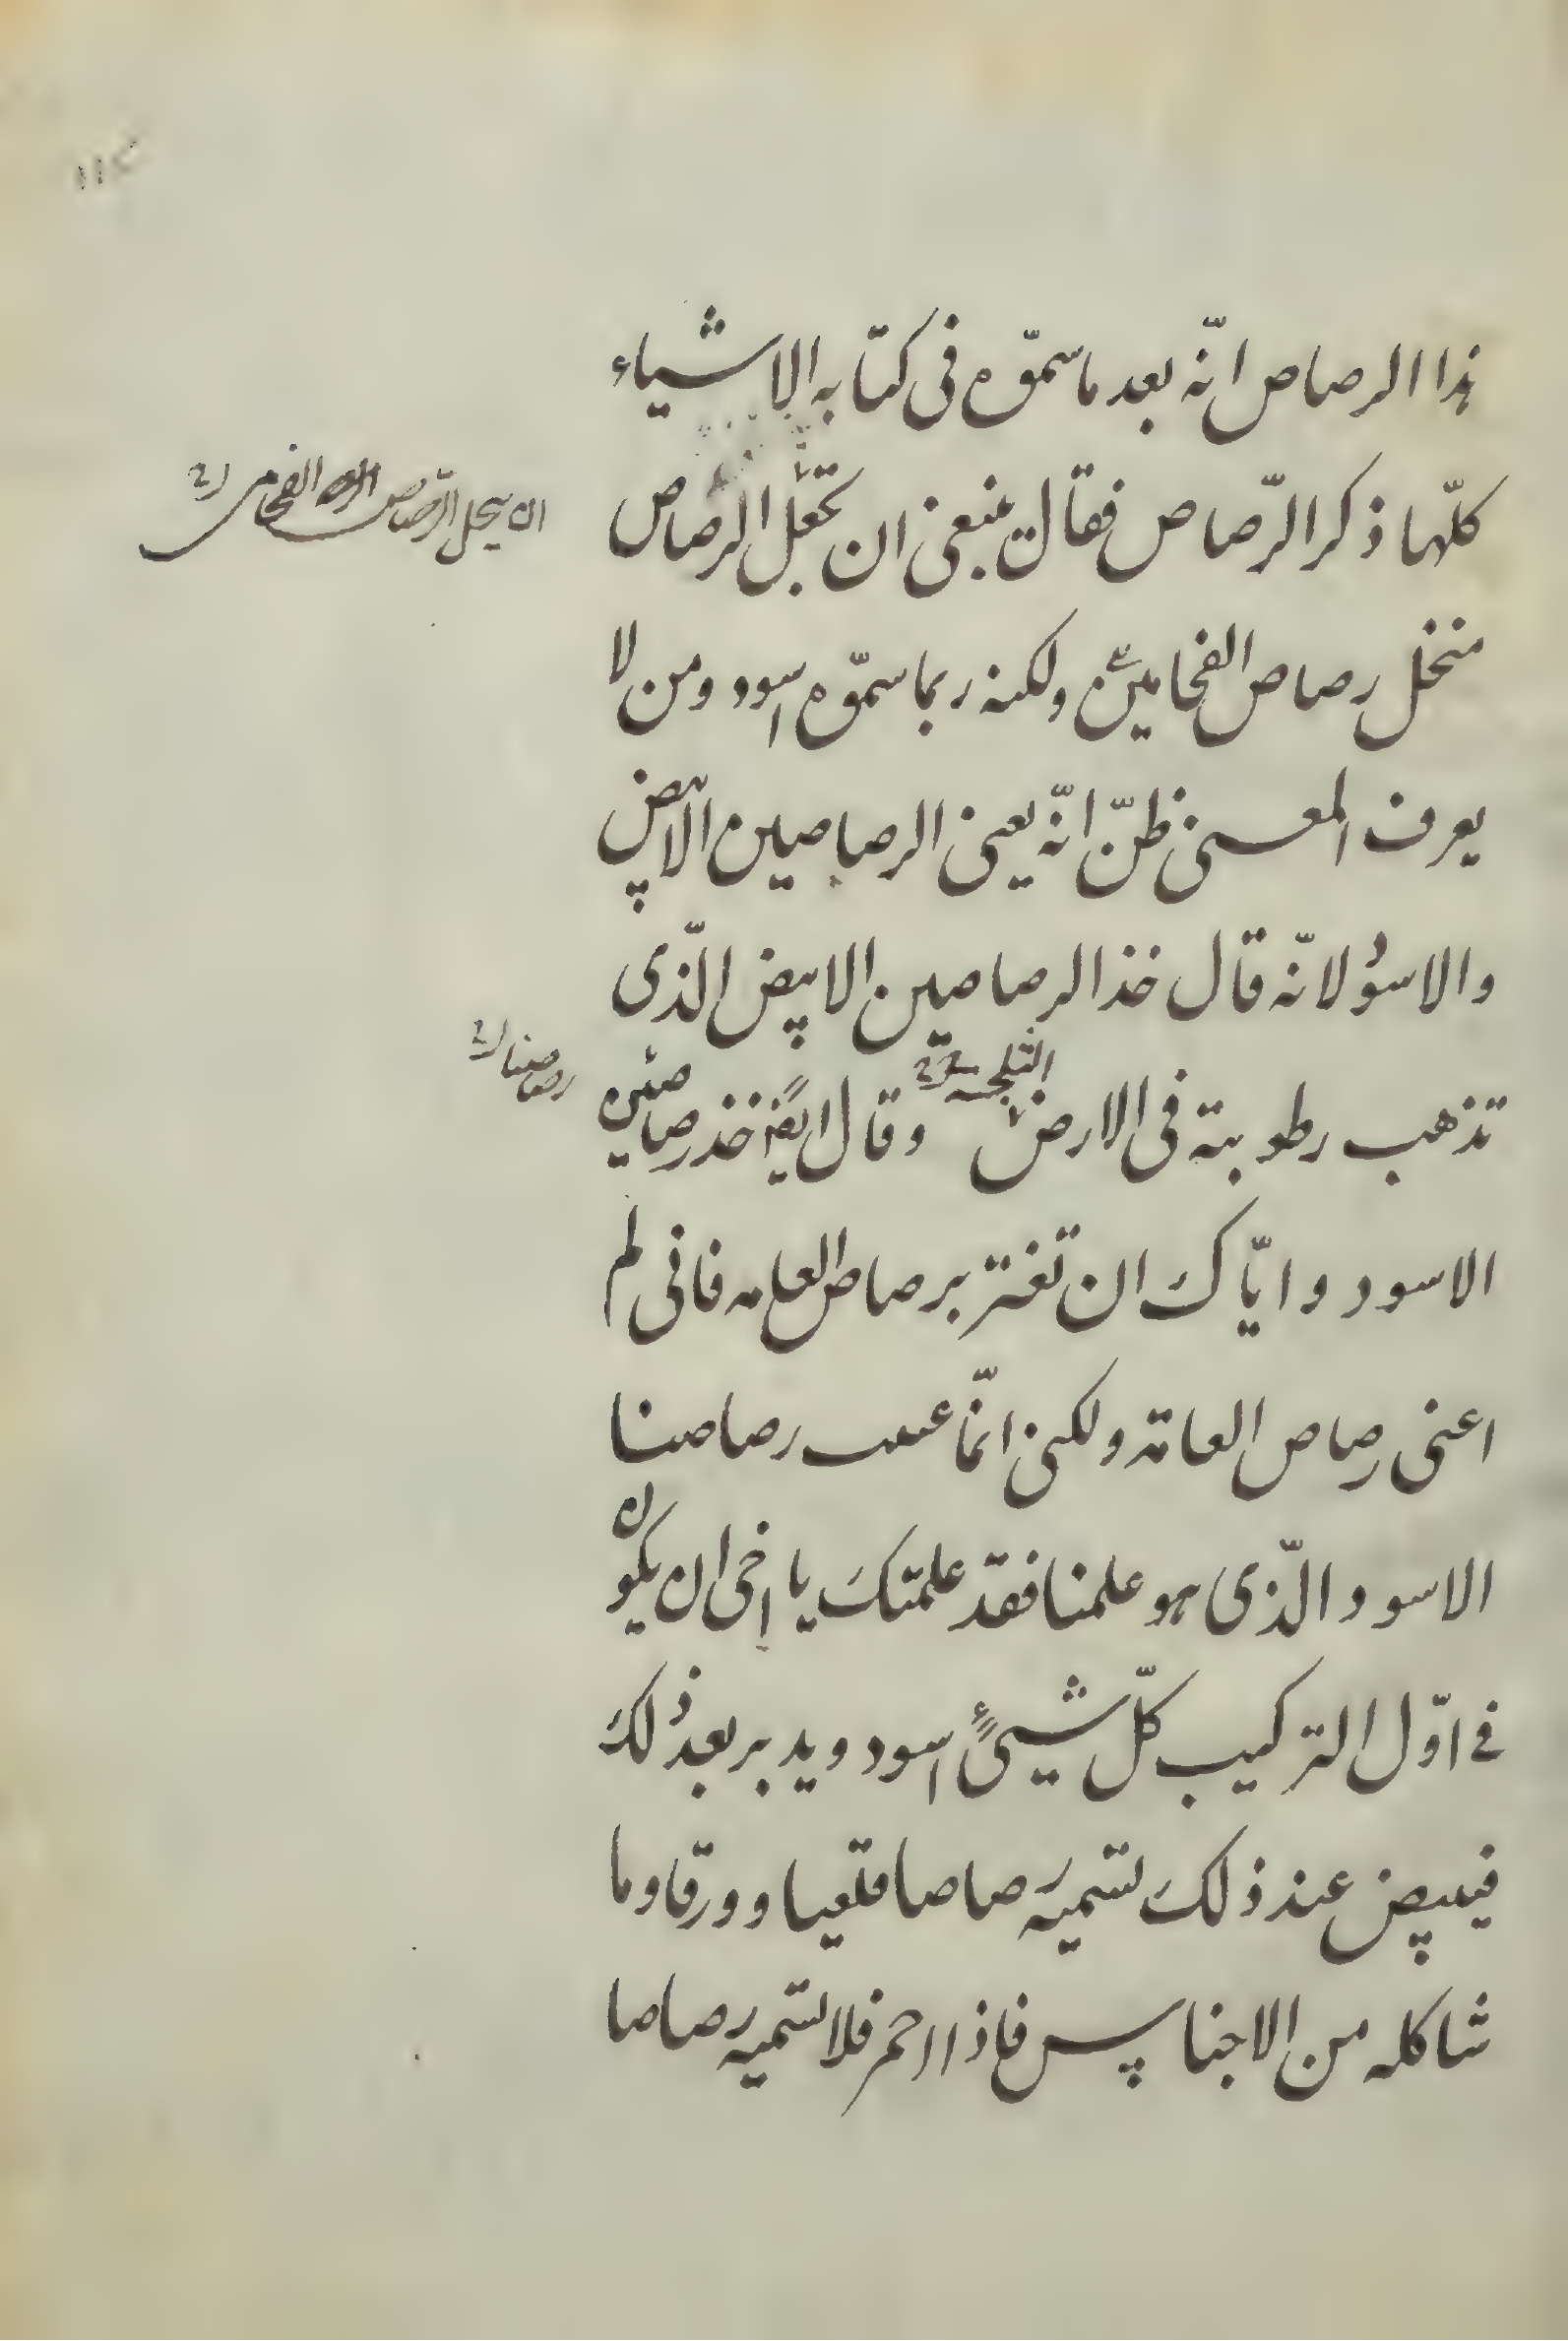 هذا الرصاص انّه بعد ما سمّوه فى كتابه الاشياء
كلّها ذكر الرّصاص فقال ينبغى ان تجعل الرصاص
منخل رصاص الفحامين ولكنه ربما سمّوه اسود ومن لا
يعرف المعنى ظنّ انّه يعنى الرصاصين الابيض
والاسود لانّه قال خذ الرصاصين الابيض الّذى
تذهب رطوبته فى الارض الثلجية وقال ايضا خذ رصاصين
الاسود وايّاك ان تغتر برصاص العامه فانى لم
اعنى رصاص العامة ولكنى انّما عنيت رصاصنا
الاسود الّذى هو علمنا فقد علمتك يا اخى ان يكون
فى اوّل التركيب كلّ شىء اسود ويدبر بعد ذلك
فيبيض عند ذلك تسميه رصاصا قلعيا وورقا وما
شاكله من الاجناس فاذا احمر فلا تسميه رصاصا
رصاصنا